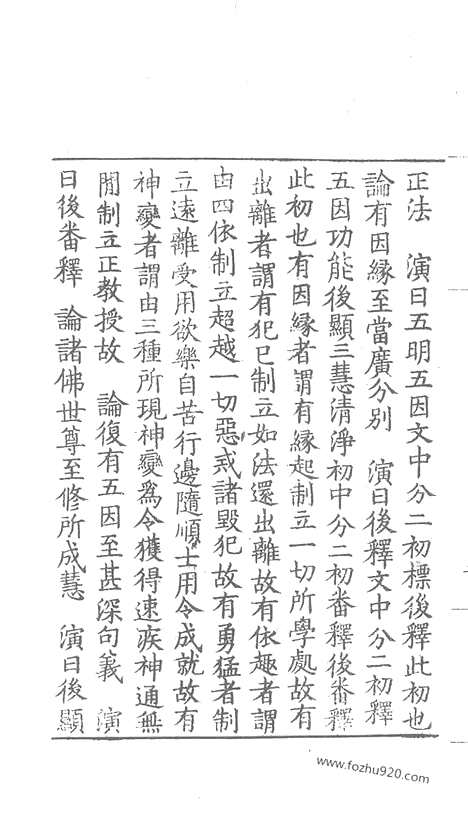 正法　演曰五明五因文中分二初標後釋此初也
論有因緣至當廣分別　演曰後釋文中分二初釋
五因功能後顯三慧清淨初中分二初番釋後番釋
此初也有因緣者謂有緣起制立一切所學處故有
出離者謂有犯已制立如法還出離故有依趣者謂
由四依制立超越一切惡戒諸毀犯故有勇猛者制
立遠離受用欲樂自苦行邊隨順士用令成就故有
神變者謂由三種所現神變為令獲得速疾神通無
間制立正教授故　論復有五因至甚深句義　演
曰後番釋　論諸佛世尊至修所成慧　演曰後顯
www.fozhu920.com